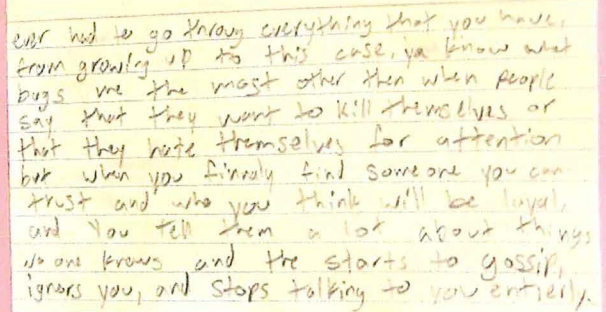 ever had to go throuy everything that you have,
from growing up to this case, ya know what
bugs me the most other then when people
say that they want to kill themselves or
that they hate themselves for attention
but when you finnaly find someone you can
trust and who you think will be loyal,
and You tell them a lot about things
No one knows and the starts to gossip,
ignors you, and stops talking to you entierly.